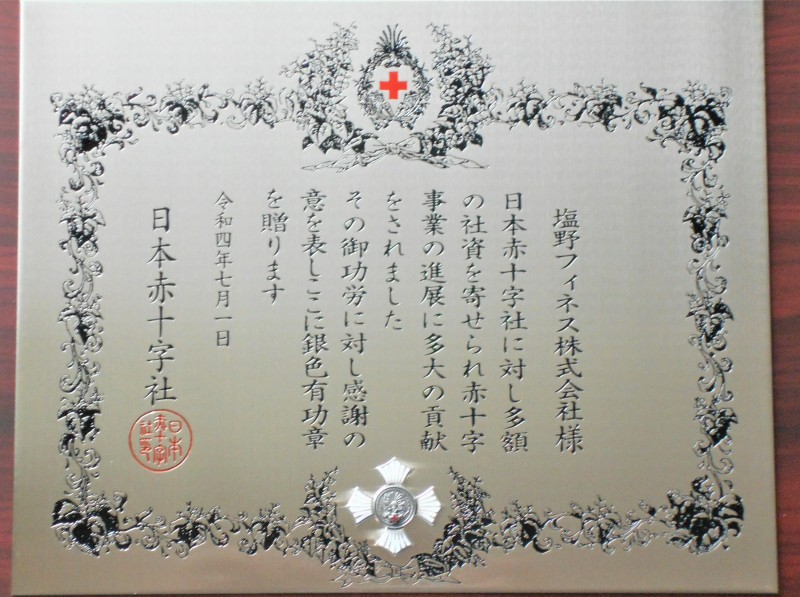 塩野フィネス株式会社様
日本赤十字社に対し多額
の社資を寄せられ赤十字
事業の進展に多大の貢献
をされました
その御功労に対し感謝の
意を表しここに銀色有功章
を贈ります
令和四年七月一日
日本赤十字社